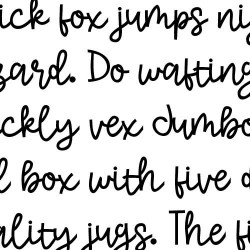 ick fox jumps ni
zard. Do wafting
ckly vex dumbo
l box with five d
ality jugs. The fi